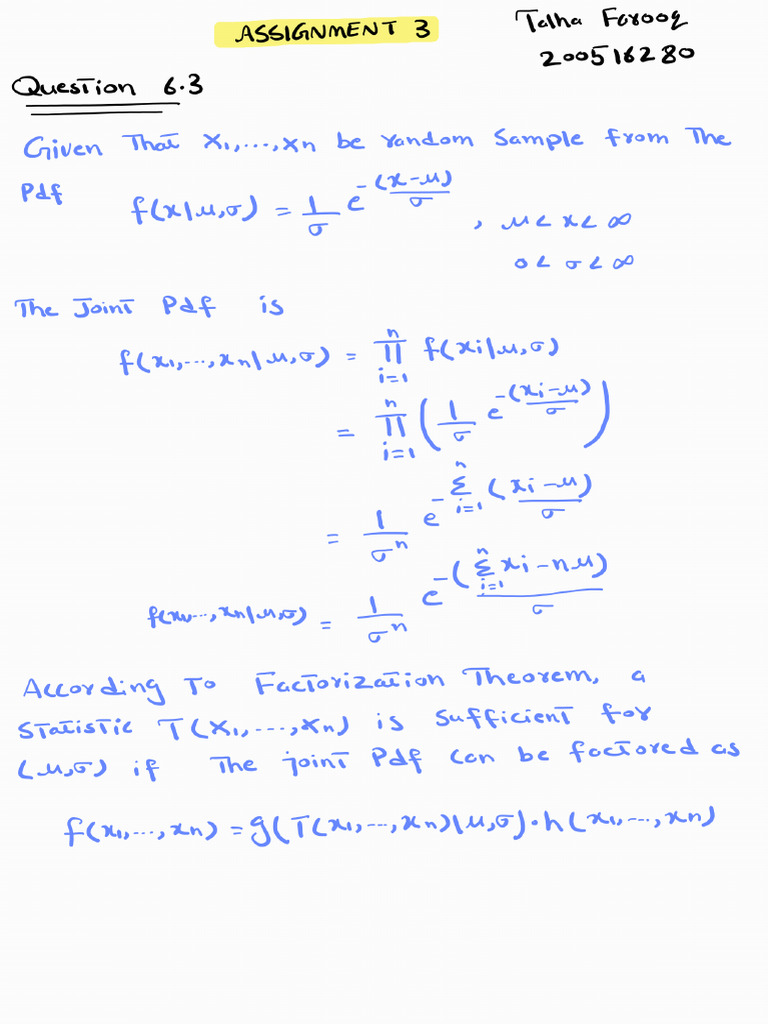 ASSIGNMENT 3
Talha Farooq
200516280
Question 6.3
Given That X₁,...,Xn be random Sample from The
Pdf
f(x|μ,σ) = 1/σ e^-(x-μ)/σ , μ < x < ∞
0 < σ < ∞
The Joint Pdf is
f(x₁,...,xn|μ,σ) = ∏_{i=1}^{n} f(xi|μ,σ)
= ∏_{i=1}^{n} (1/σ e^-(xi-μ)/σ)
= 1/σⁿ e^-∑_{i=1}^{n} (xi-μ)/σ
f(x₁,...,xn|μ,σ) = 1/σⁿ e^-(∑_{i=1}^{n} xi-nμ)/σ
According To Factorization Theorem, a
Statistic T(X₁,...,Xn) is sufficient for
(μ,σ) if The joint Pdf can be factored as
f(x₁,...,xn) = g(T(x₁,...,xn)|μ,σ)·h(x₁,...,xn)